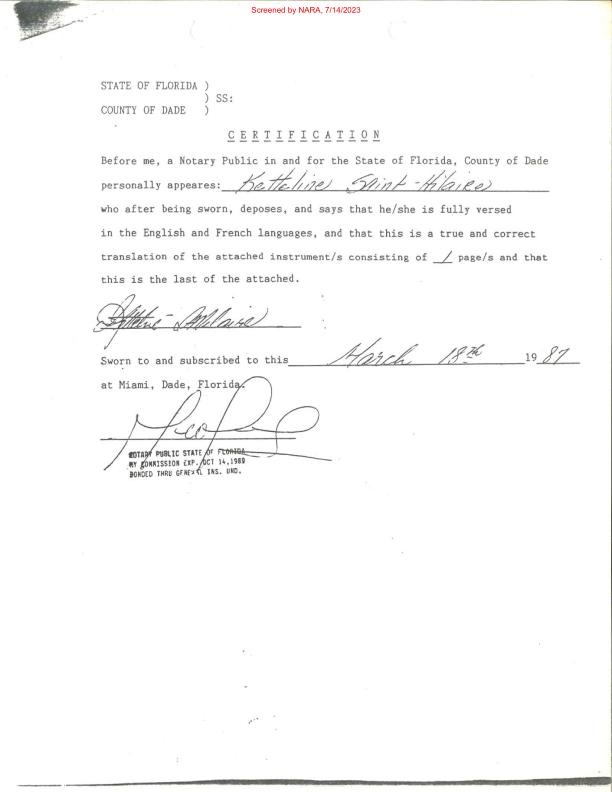 Screened by NARA, 7/14/2023
STATE OF FLORIDA )
) SS:
COUNTY OF DADE )
CERTIFICATION
Before me, a Notary Public in and for the State of Florida, County of Dade
personally appeares: Ketteline Saint-Hilaire
who after being sworn, deposes, and says that he/she is fully versed
in the English and French languages, and that this is a true and correct
translation of the attached instrument/s consisting of 1 page/s and that
this is the last of the attached.
Sworn to and subscribed to this March 18th 1987
at Miami, Dade, Florida.
NOTARY PUBLIC STATE OF FLORIDA
MY COMMISSION EXP. OCT 14,1989
BONDED THRU GENERAL INS. UND.